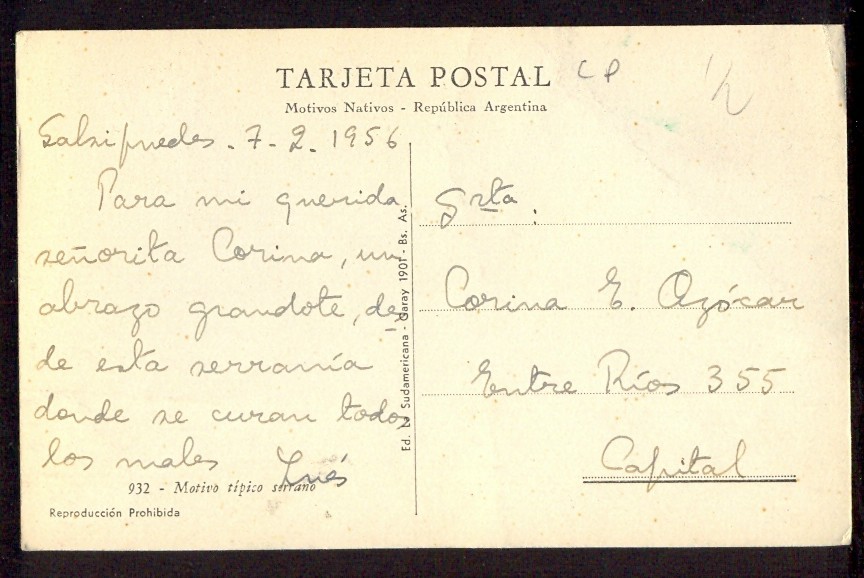 TARJETA POSTAL
CP
1/2
Motivos Nativos - República Argentina
Salsipuedes - 7-2-1956
Para mi querida
señorita Corina, un
abrazo grandote, des
de esta serranía
donde se curan todos
los males Inés
932 - Motivo típico serrano
Reproducción Prohibida
Ed. Sudamericana - Garay 1901 - Bs. As.
Srta :
Corina E. Azócar
Entre Ríos 355
Capital